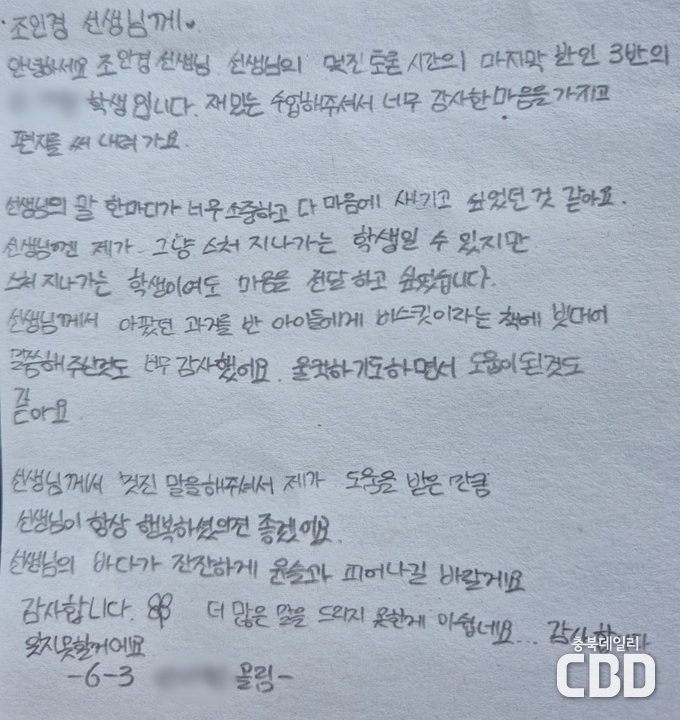 조인경 선생님께
안녕하세요 조인경 선생님 선생님의 멋진 토론 시간의 마지막 반인 3반의
학생 입니다. 재밌는 수업해주셔서 너무 감사한 마음을 가지고
편지를 써 내려 가요.
선생님의 말 한마디가 너무 소중하고 다 마음에 새기고 싶었던 것 같아요.
선생님껜 제가 그냥 스쳐 지나가는 학생일 수 있지만
스쳐 지나가는 학생이여도 마음을 전달 하고 싶었습니다.
선생님께서 아팠던 과거를 반 아이들에게 비스킷이라는 책에 빗대어
말씀해 주신것도 너무 감사했어요. 울컥하기도하면서 도움이 된것도
같아요
선생님께서 멋진 말을해주셔서 제가 도움을 받은 만큼
선생님이 항상 행복하셨으면 좋겠어요.
선생님의 바다가 잔잔하게 윤슬과 피어나길 바랄게요
감사합니다. 더 많은 말을 드리지 못한게 아쉽네요... 감사합니다
잊지못할거에요
-6-3 올림-
충북데일리
CBD